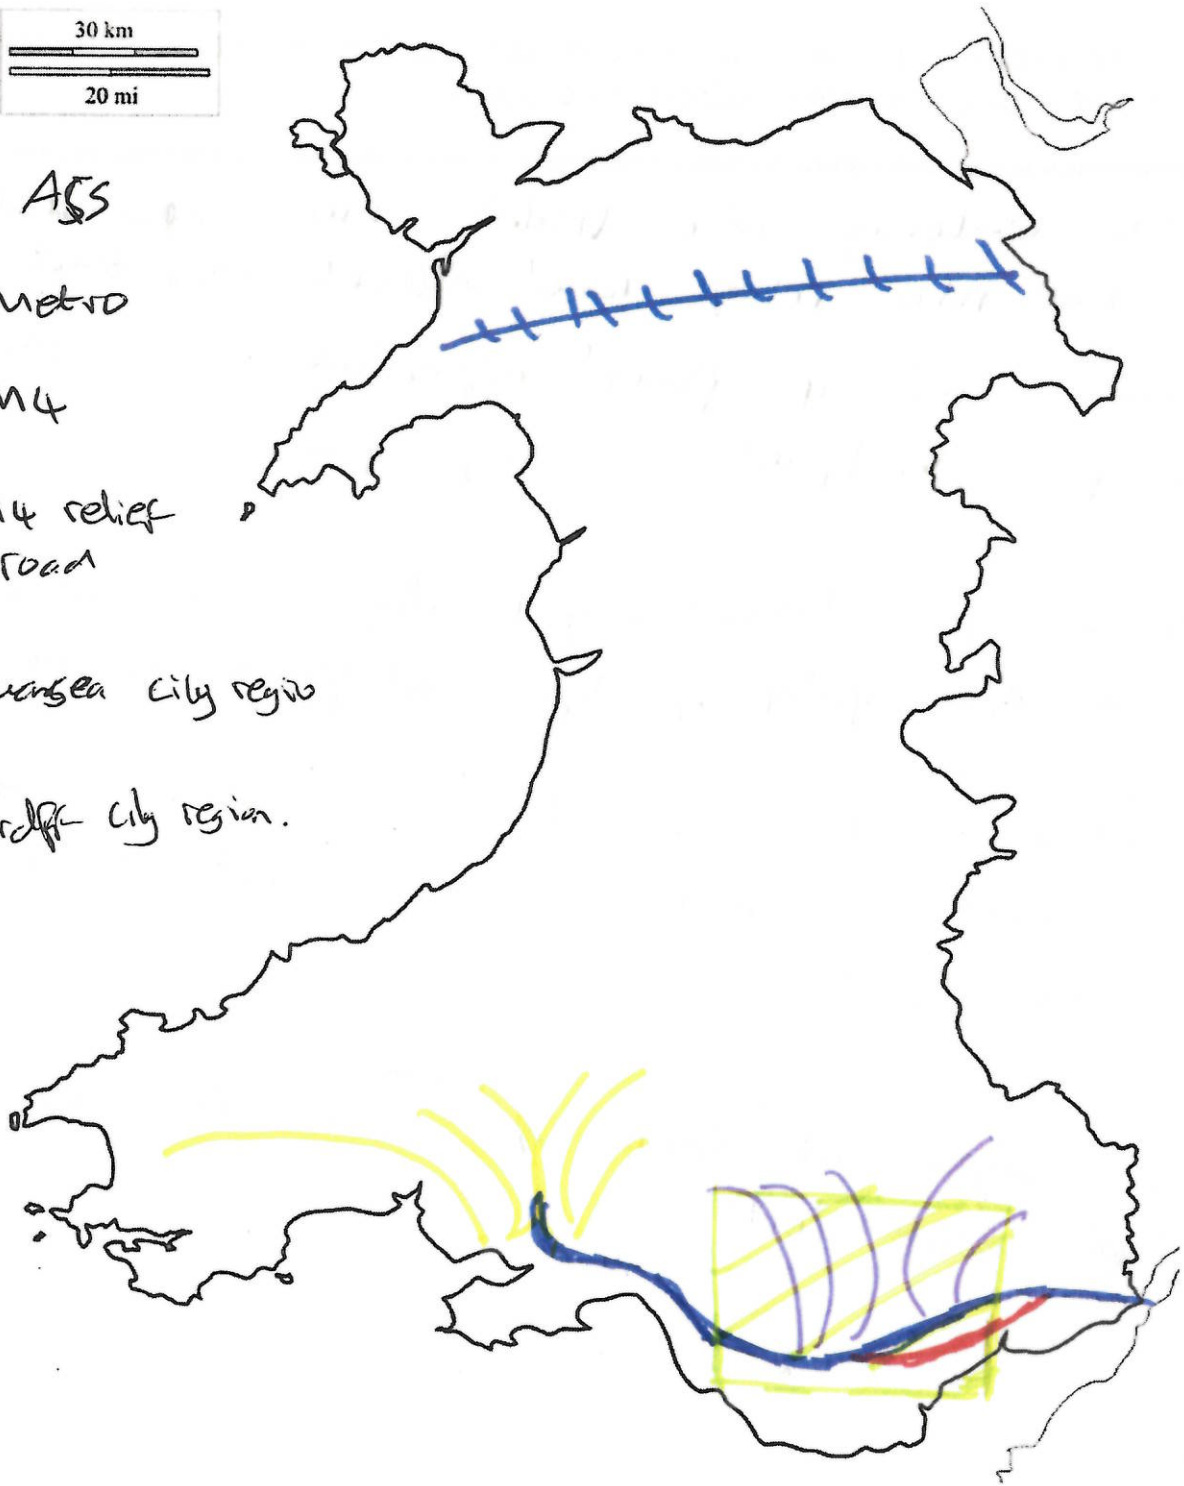 30 km
20 mi
A55
Metro
M4
M4 relief
road
wansea City regio
rdiff City region.